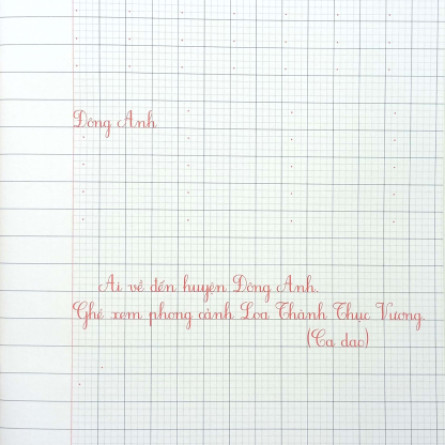 Đông Anh
Ai về đến huyện Đông Anh.
Ghé xem phong cảnh Loa Thành Thục Vương.
(Ca dao)